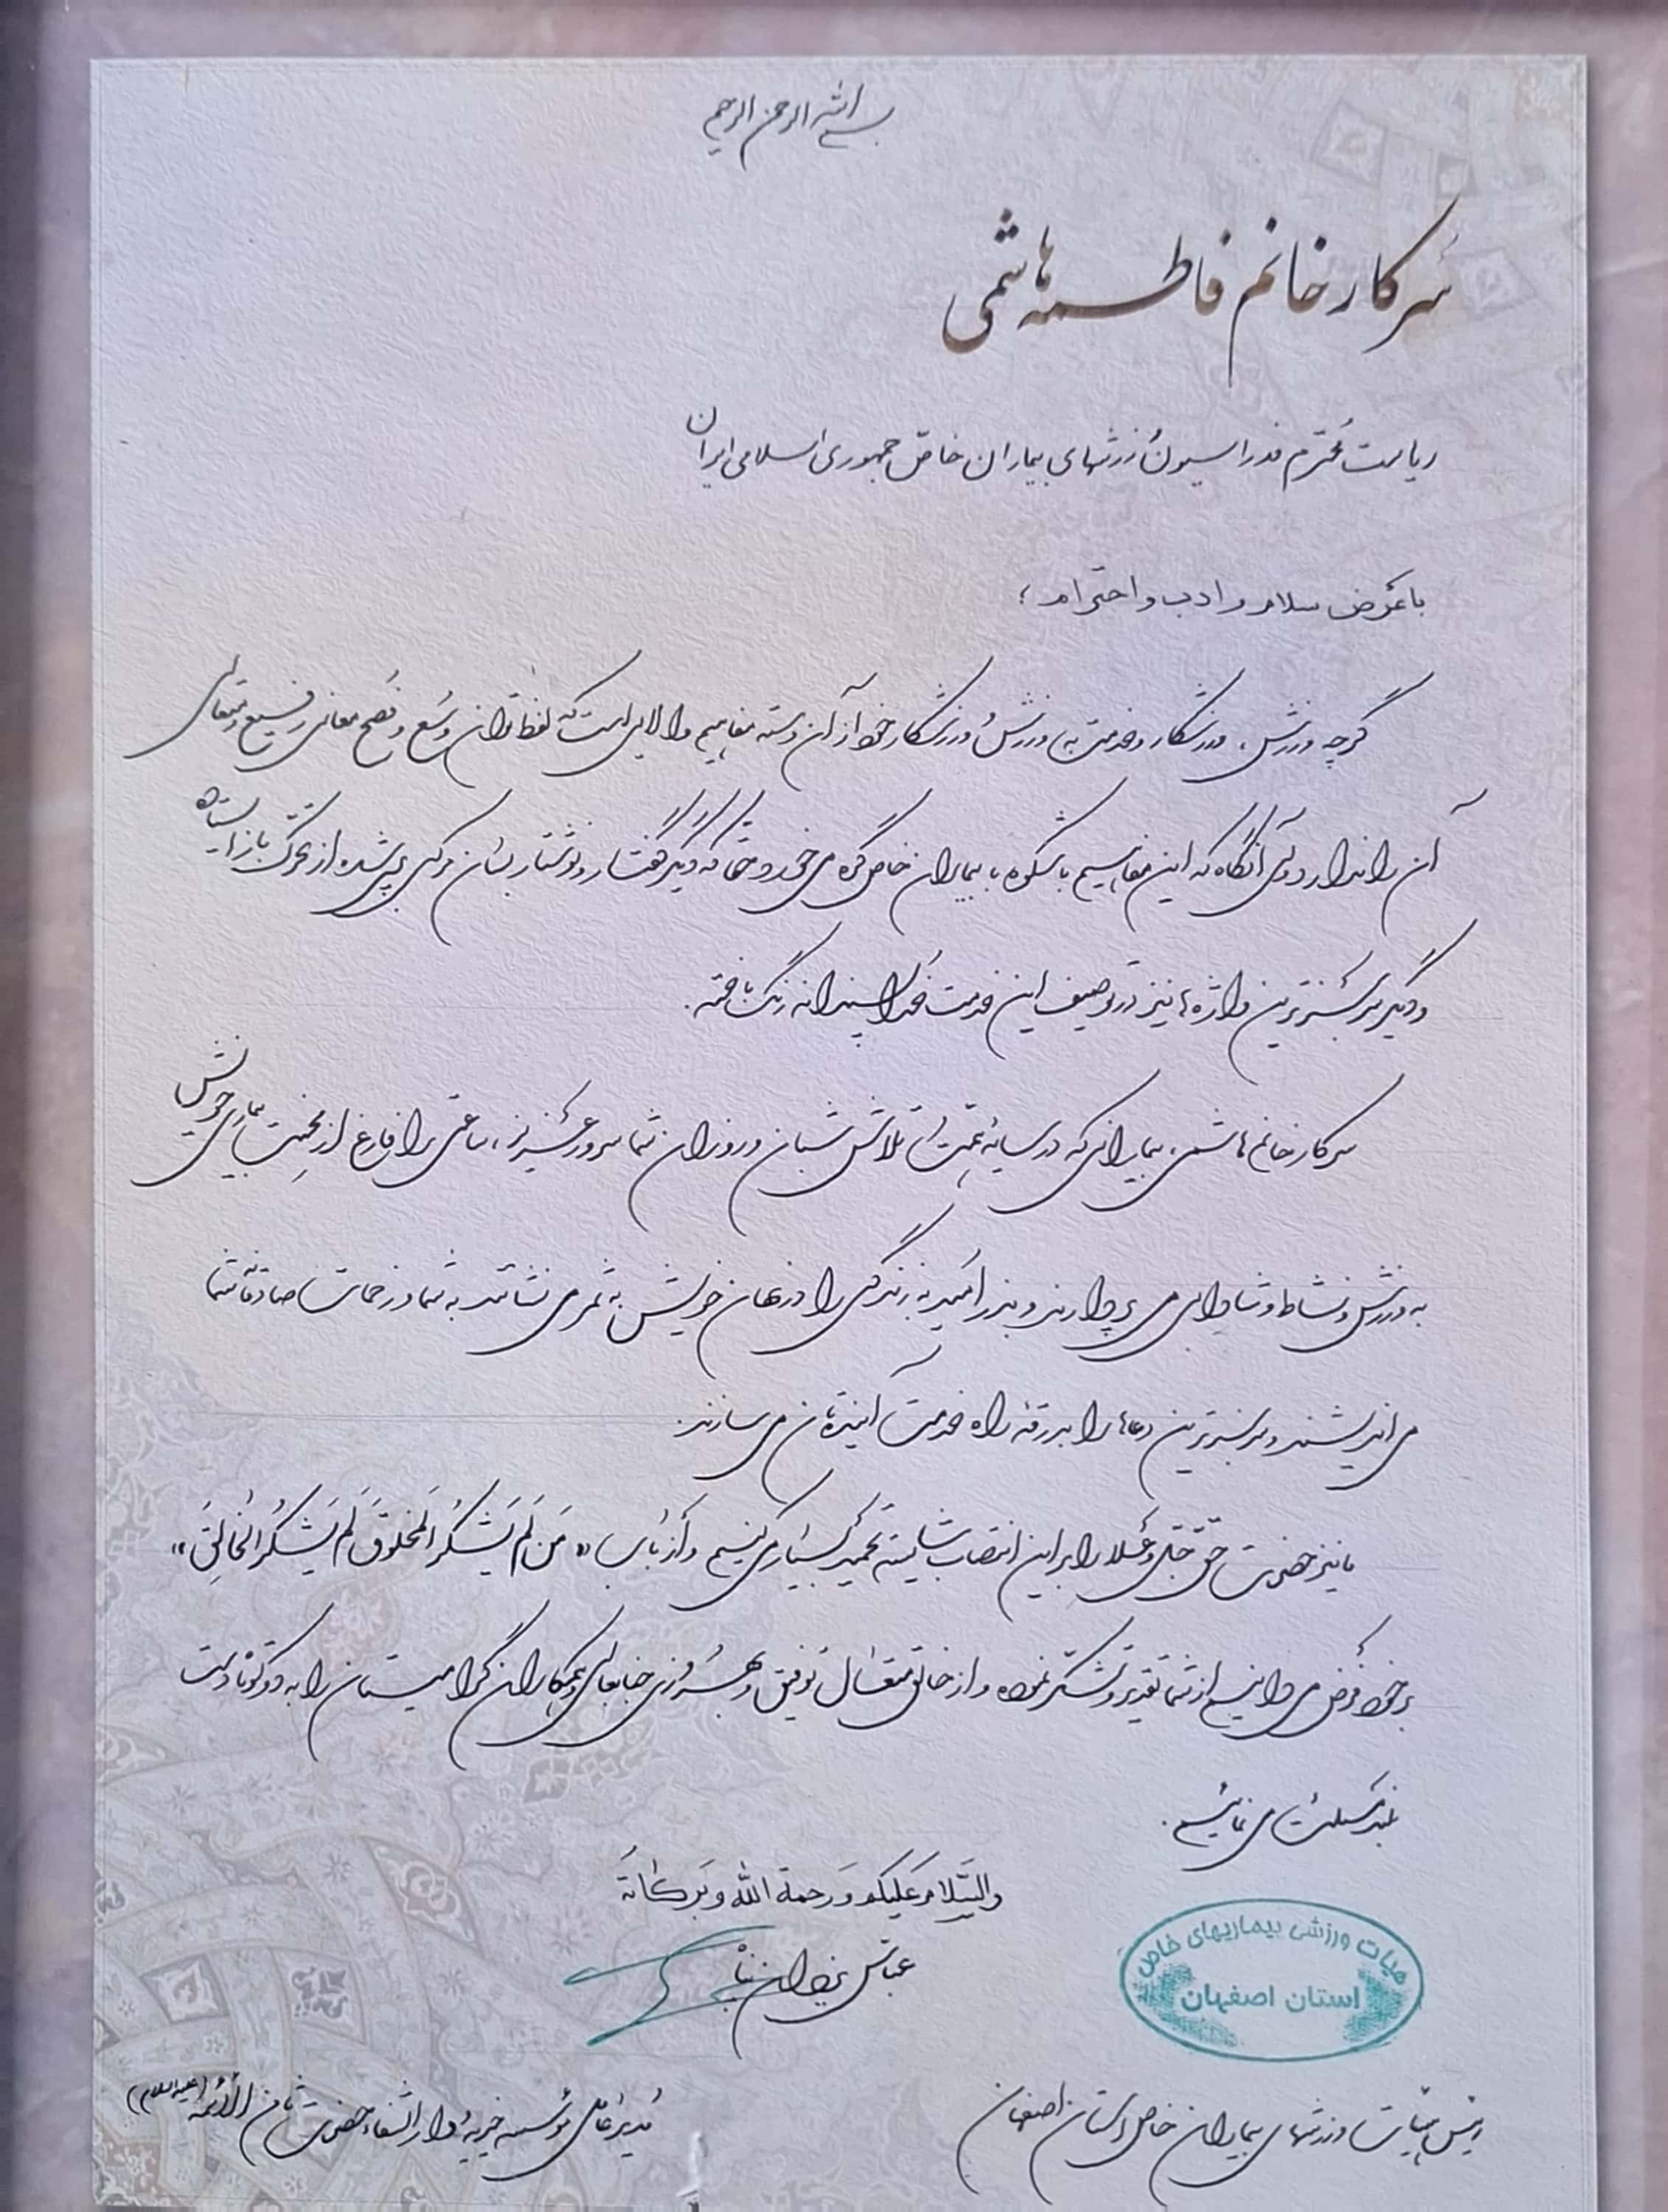 بسم الله الرحمن الرحیم
سرکار خانم فاطمه هاشمی
ریاست محترم فدراسیون ورزشهای بیماران خاص جمهوری اسلامی ایران
با عرض سلام و ادب و احترام؛
گرچه ورزش، ورزشکار و خدمت به ورزش و ورزشکار خود از آن دسته مفاهیم والایی است که لفظ توان وسع و فصح معانی رفیع و متعالی
آن را ندارد ولی آنگاه که این مفاهیم باشکوه با بیماران خاص گره می‌خورد حقا که دیگر گفتار و نوشتار بسان مرکبی پی شده از تحرک باز ایستاده
و دیگر سرسبزترین واژه‌ها نیز در توصیف این خدمت خداپسندانه رنگ باخته.
سرکار خانم هاشمی، بیمارانی که در سایه همت و تلاش شبان و روزان شما سرور عزیز، ساعتی را فارغ از محنت بیماری خویش
به ورزش و نشاط و شادابی می پردازند و بذر امید به زندگی را در نهان خویش به ثمر می نشانند به شما و زحمات صادقانه شما
می اندیشند و سرسبزترین دعاها را بدرقه راه خدمت آینده‌تان می سازند.
ما نیز حضرت حق جل و علا را بر این انتصاب شایسته تحمید بسیار می کنیم و از باب «مَن لَم یَشکُرِ المَخلوقَ لَم یَشکُرِ الخالِق»
بر خود فرض می دانیم از شما تقدیر و تشکر نموده و از خالق متعال توفیق و بهروزی جنابعالی و همکاران گرامیتان را به دو گونه دست
نیز مسئلت می نمائیم.
والسَّلامُ عَلَیکُم وَ رَحمة الله وَ بَرَکاتُهُ
عباس یزدان پناه
هیات ورزشی بیماریهای خاص
استان اصفهان
رئیس هیات ورزشهای بیماران خاص استان اصفهان
مدیرعامل موسسه خیریه دارالشفاء حضرت ثامن الائمه (علیه السلام)